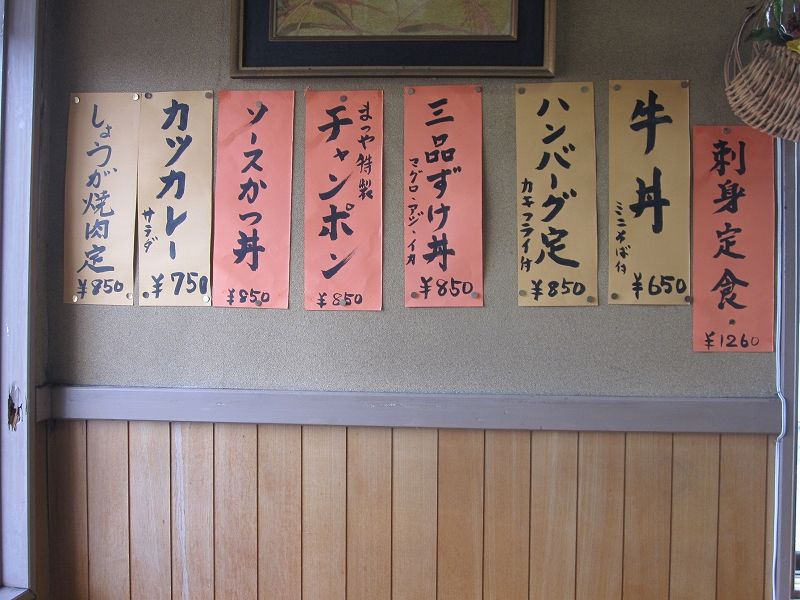 刺身定食
¥1260
牛丼
ミニそば付
¥650
ハンバーグ定
カキフライ付
¥850
三品ずけ丼
マグロ・アジ・イカ
¥850
まつや特製
チャンポン
¥850
ソースかつ丼
¥850
カツカレー
サラダ
¥750
しょうが焼肉定
¥850